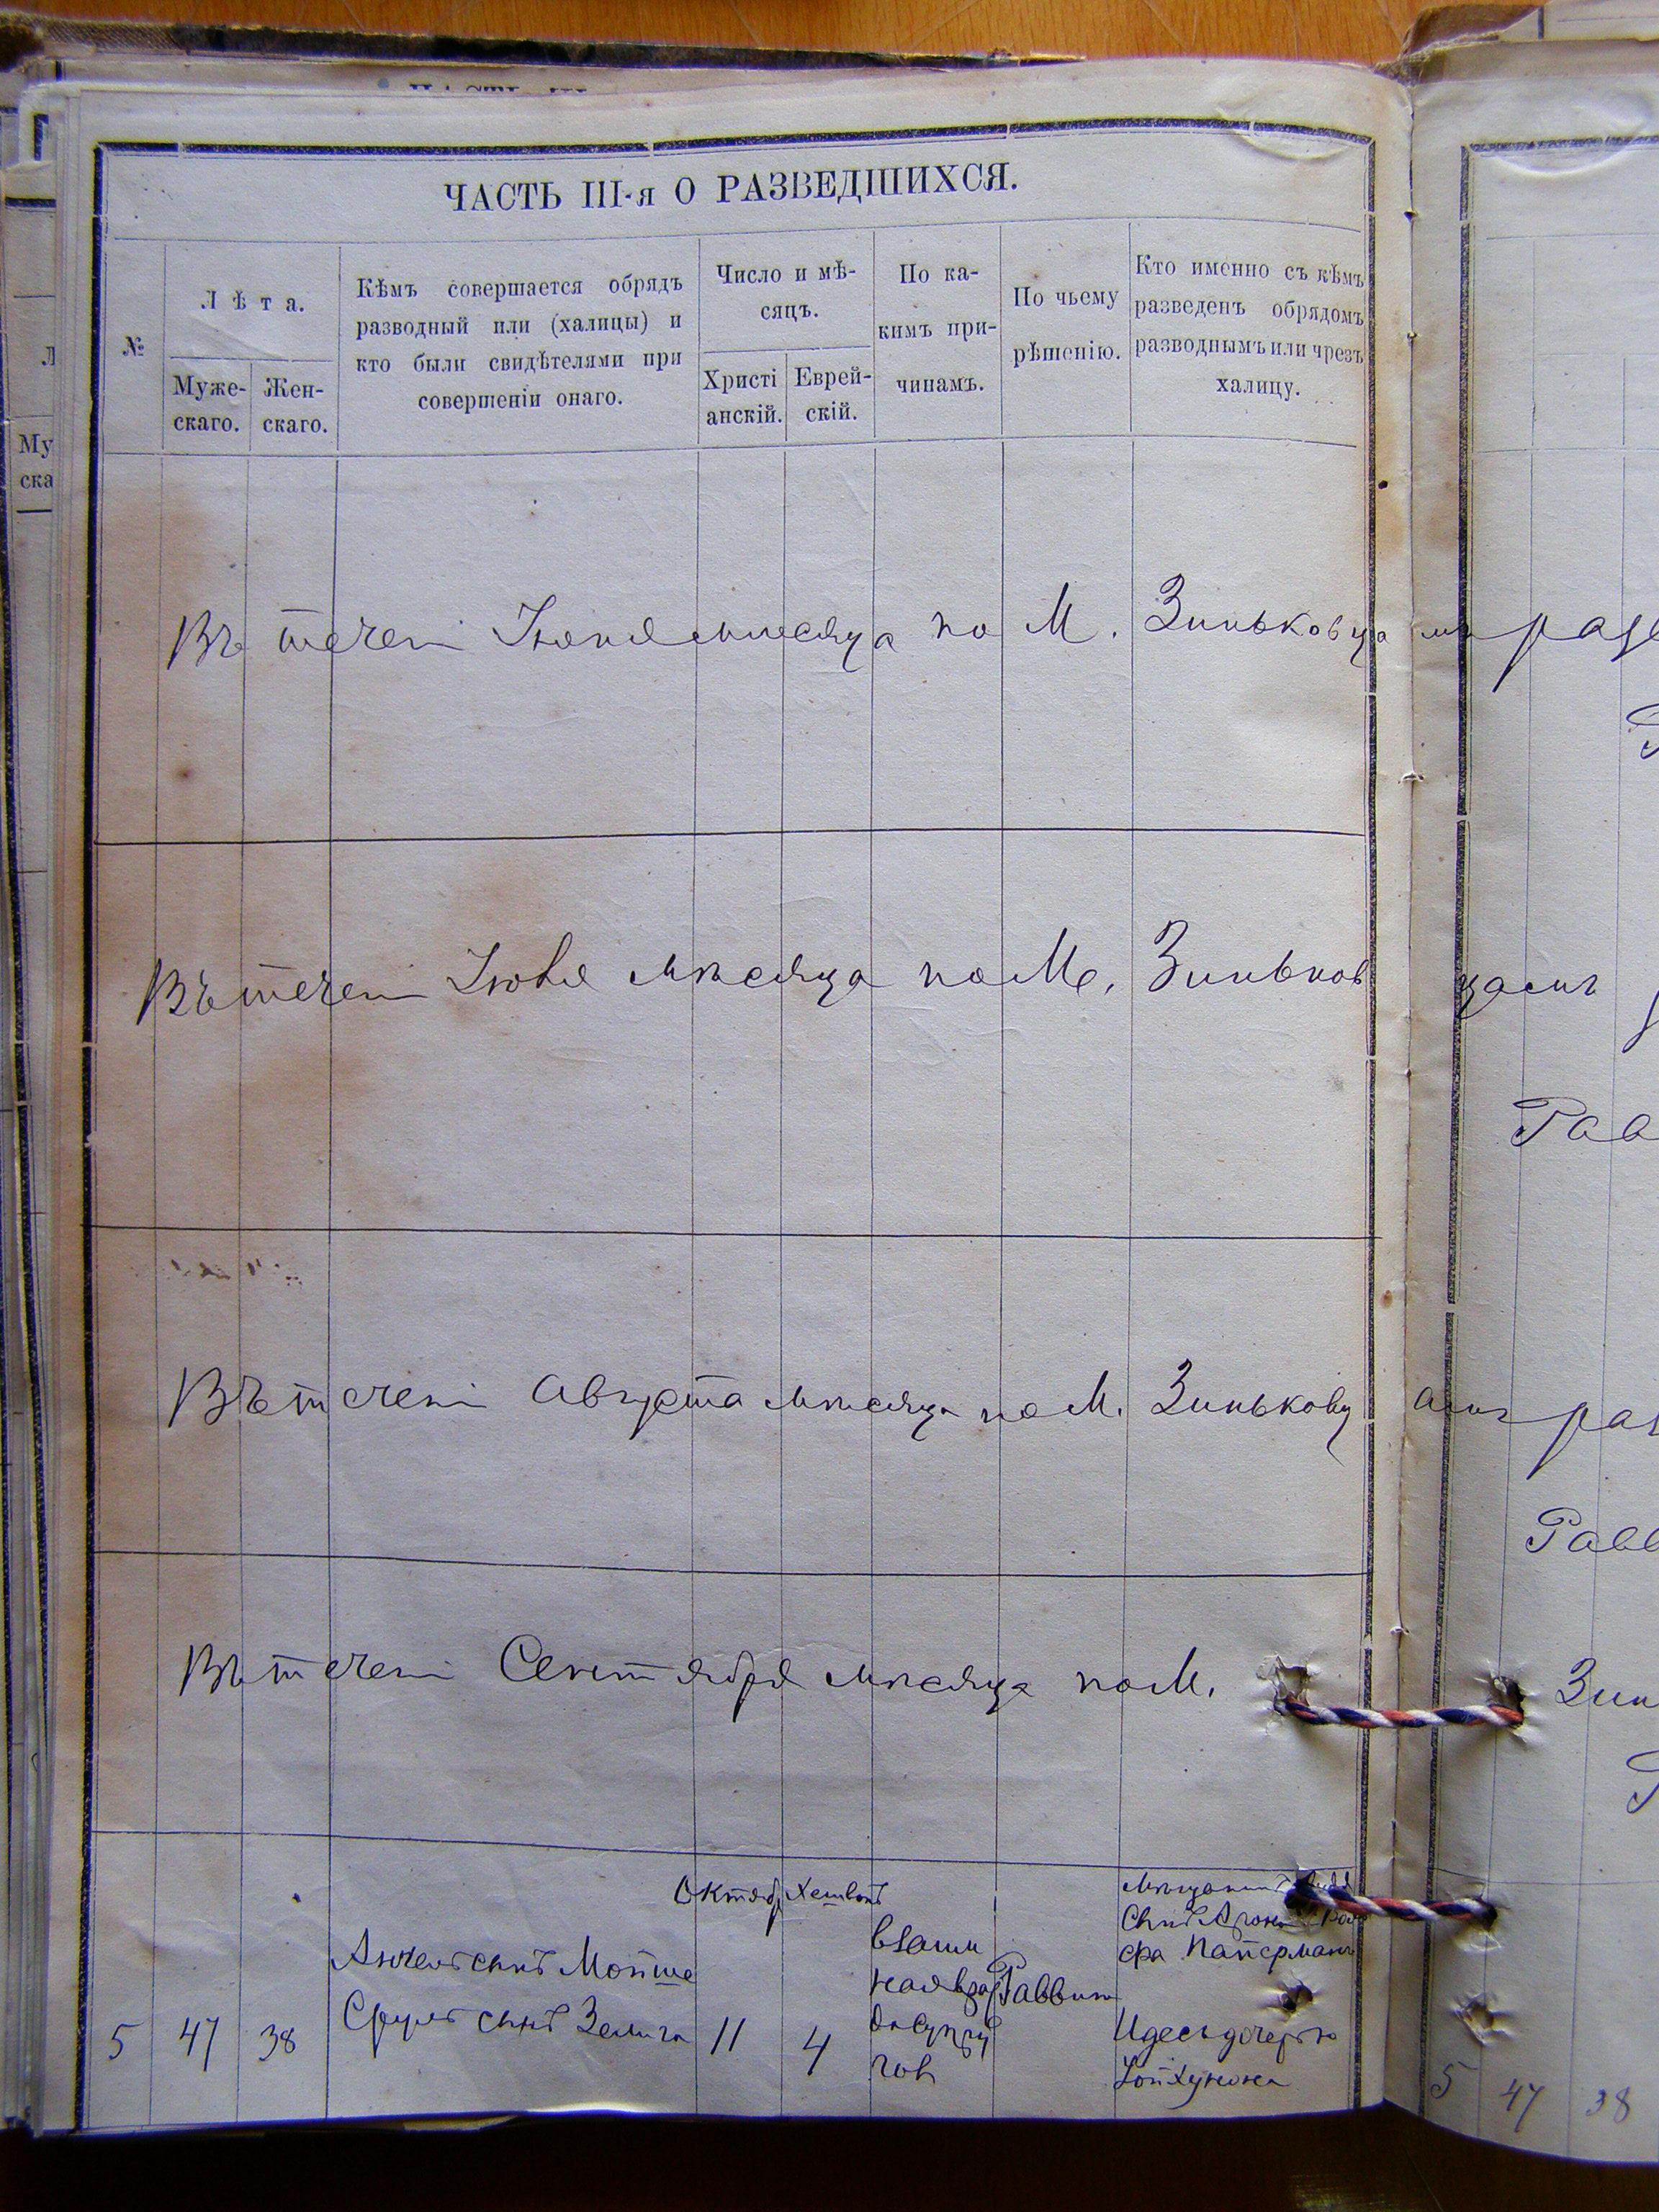 ЧАСТЬ III-я О РАЗВЕДШИХСЯ.
№
Лѣта.
Муже-
скаго.
Жен-
скаго.
Кѣмъ совершается обрядъ
разводный или (халицы) и
кто были свидѣтелями при
совершеніи онаго.
Число и мѣ-
сяцъ.
Христі
анскій.
Еврей-
скій.
По ка-
кимъ при-
чинамъ.
По чьему
рѣшенію.
Кто именно съ кѣмъ
разведенъ обрядомъ
разводнымъ или чрезъ
халицу.
Му
ска
Въ течени Іюня мѣсяца по М. Зиньковца мъ разв
Въ течени Іюля мѣсяца по М. Зиньков цамъ
Рав
Въ течени Августа мѣсяца по М. Зиньковц амъ раз
Равв
Въ течени Сентября мѣсяца по М. Зин
5
47
38
сынъ Мойше
Сруль сынъ Зелига
Октяб
11
Хешвон
4
взаим
ная
супру
гов
Раввин
Мѣщанинъ
Сынъ Арона
Паперман
Идесь дочерью
5 47 38